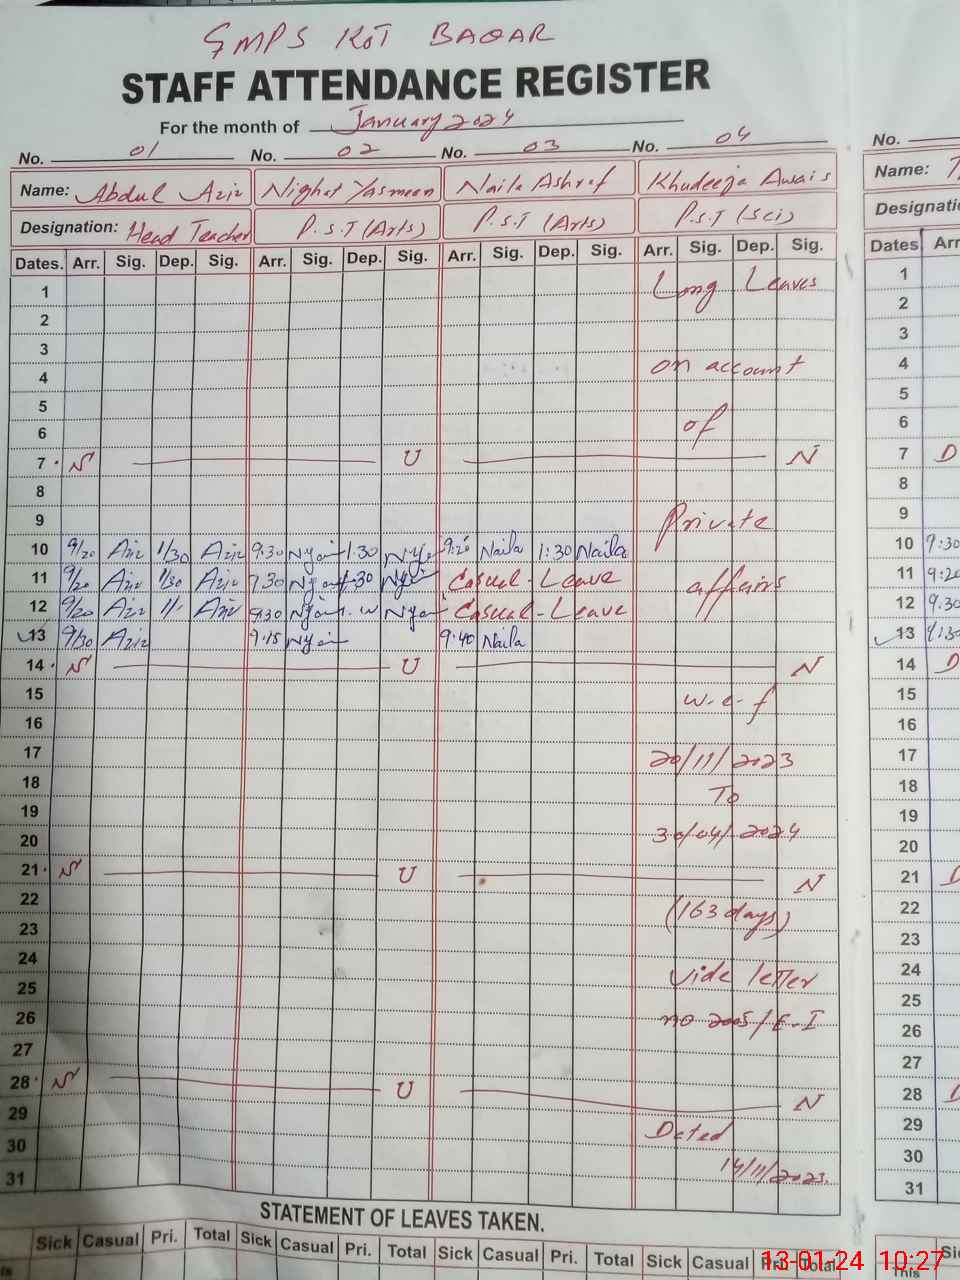 GMPS KOT BAQAR
STAFF ATTENDANCE REGISTER
For the month of January 2024
No. 01 No. 02 No. 03 No. 04 No.
Name: Abdul Aziz Nighat Yasmeen Naila Ashraf Khudeeja Awais Name:
Designation: Head Teacher P.S.T (Arts) P.S.T (Arts) P.S.T (Sci)
Dates. Arr. Sig. Dep. Sig. Arr. Sig. Dep. Sig. Arr. Sig. Dep. Sig. Arr. Sig. Dep. Sig. Dates
1 Long Leaves 1
2 2
3 3
4 on account 4
5 5
6 of 6
7 S U N 7 D
8 8
9 Private 9
10 9/20 Aziz 1/30 Aziz 9:30 1:30 9:20 Naila 1:30 Naila 10 9:30
11 9/20 Aziz 1/30 Aziz Casual-Leave affairs 11 9:20
12 9/20 Aziz Aziz 9:30 Casual-Leave 12 9:30
13 9/30 Aziz 9:15 9:40 Naila 13
14 S U N 14 D
15 w.e.f 15
16 16
17 20/11/2023 17
18 To 18
19 30/04/2024 19
20 20
21 S U N 21 D
22 (163 days) 22
23 23
24 Vide letter 24
25 25
26 no 2005/E-I 26
27 27
28 S U N 28 D
29 Dated 29
30 14/11/2023. 30
31 31
STATEMENT OF LEAVES TAKEN.
Sick Casual Pri. Total Sick Casual Pri. Total Sick Casual Pri. Total Sick Casual Pri. Total
This
13-01-24 10:27